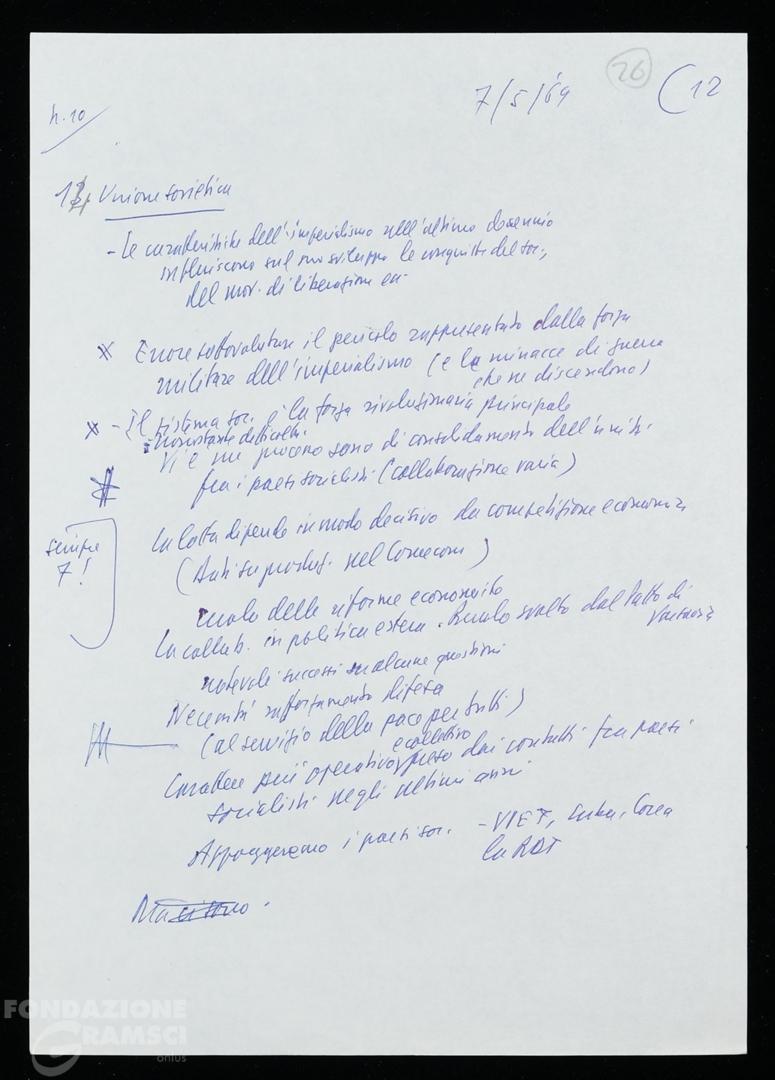 7/5/'69
26
(12
h. 10
13) Unione sovietica
- Le caratteristiche dell'imperialismo nell'ultimo decennio
influiscono sul suo sviluppo le conquiste del soc.,
del mov. di liberazione
x Errore sottovalutare il pericolo rappresentato dalla forza
militare dell'imperialismo (e le minacce di guerra
che ne discendono)
x - Il sistema soc. è la forza rivoluzionaria principale
nonostante difficoltà.
Vi è un processo sano di consolidamento dell'unità
fra i paesi socialisti (collaborazione varia)
sempre
7!
La lotta dipende in modo decisivo da competizione economica
( nel Comecon)
ruolo delle riforme economiche
La collab. in politica estera. Ruolo svolto dal Patto di
Varsavia
notevoli successi su alcune questioni
Necessità rafforzamento difesa
(al servizio della pace per tutti)
e collettivo
Carattere più operativo preso dai contatti fra paesi
socialisti negli ultimi anni
Appoggeremo i paesi soc. - VIET, Cuba, Corea
la RDT
FONDAZIONE
GRAMSCI
onlus